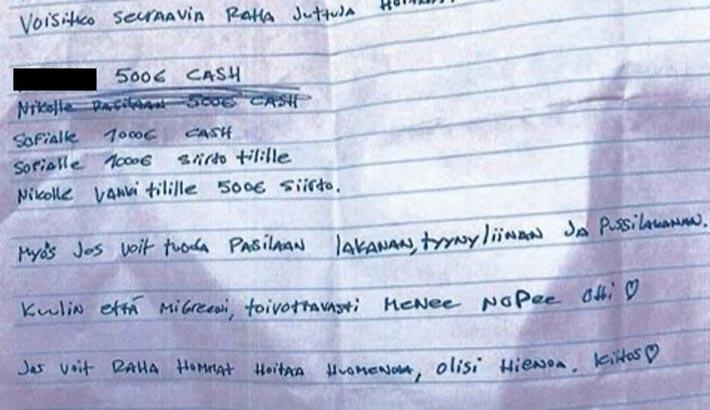 Voisitko seuraavia RAHA Juttuja
500€ CASH
Nikolle PASILAAN 500€ CASH
Sofialle 1000€ CASH
Sofialle 1000€ Siirto tilille
Nikolle VANKI tilille 500€ Siirto.
Myös Jos voit tuoda PASILAAN lakanan, tyynyliinan JA Pussilakanan.
Kuulin että Migreeni, toivottavasti MENEE NOPEE Ohi ♡
Jos voit RAHA HOMMAT HOITAA HUOMENNA, olisi HIENOA. Kiitos ♡